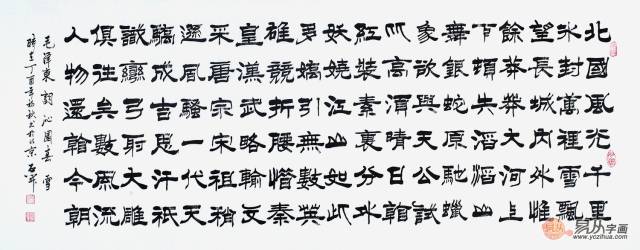 北國風光千里
冰封萬裡雪飄
望長城內外惟
餘莽莽大河上
下頓失滔滔山
舞銀蛇原馳蠟
象欲與天公試
比高須晴日看
紅裝素裹分外
妖嬈江山如此
多嬌引無數英
雄競折腰惜秦
皇漢武略輸文
采唐宗宋祖稍
遜風騷一代天
驕成吉思汗祇
識彎弓射大雕
俱往矣數風流
人物還看今朝
毛澤東詞沁園春雪
丁酉年初秋書於北京
易从字画
www.yczihua.com